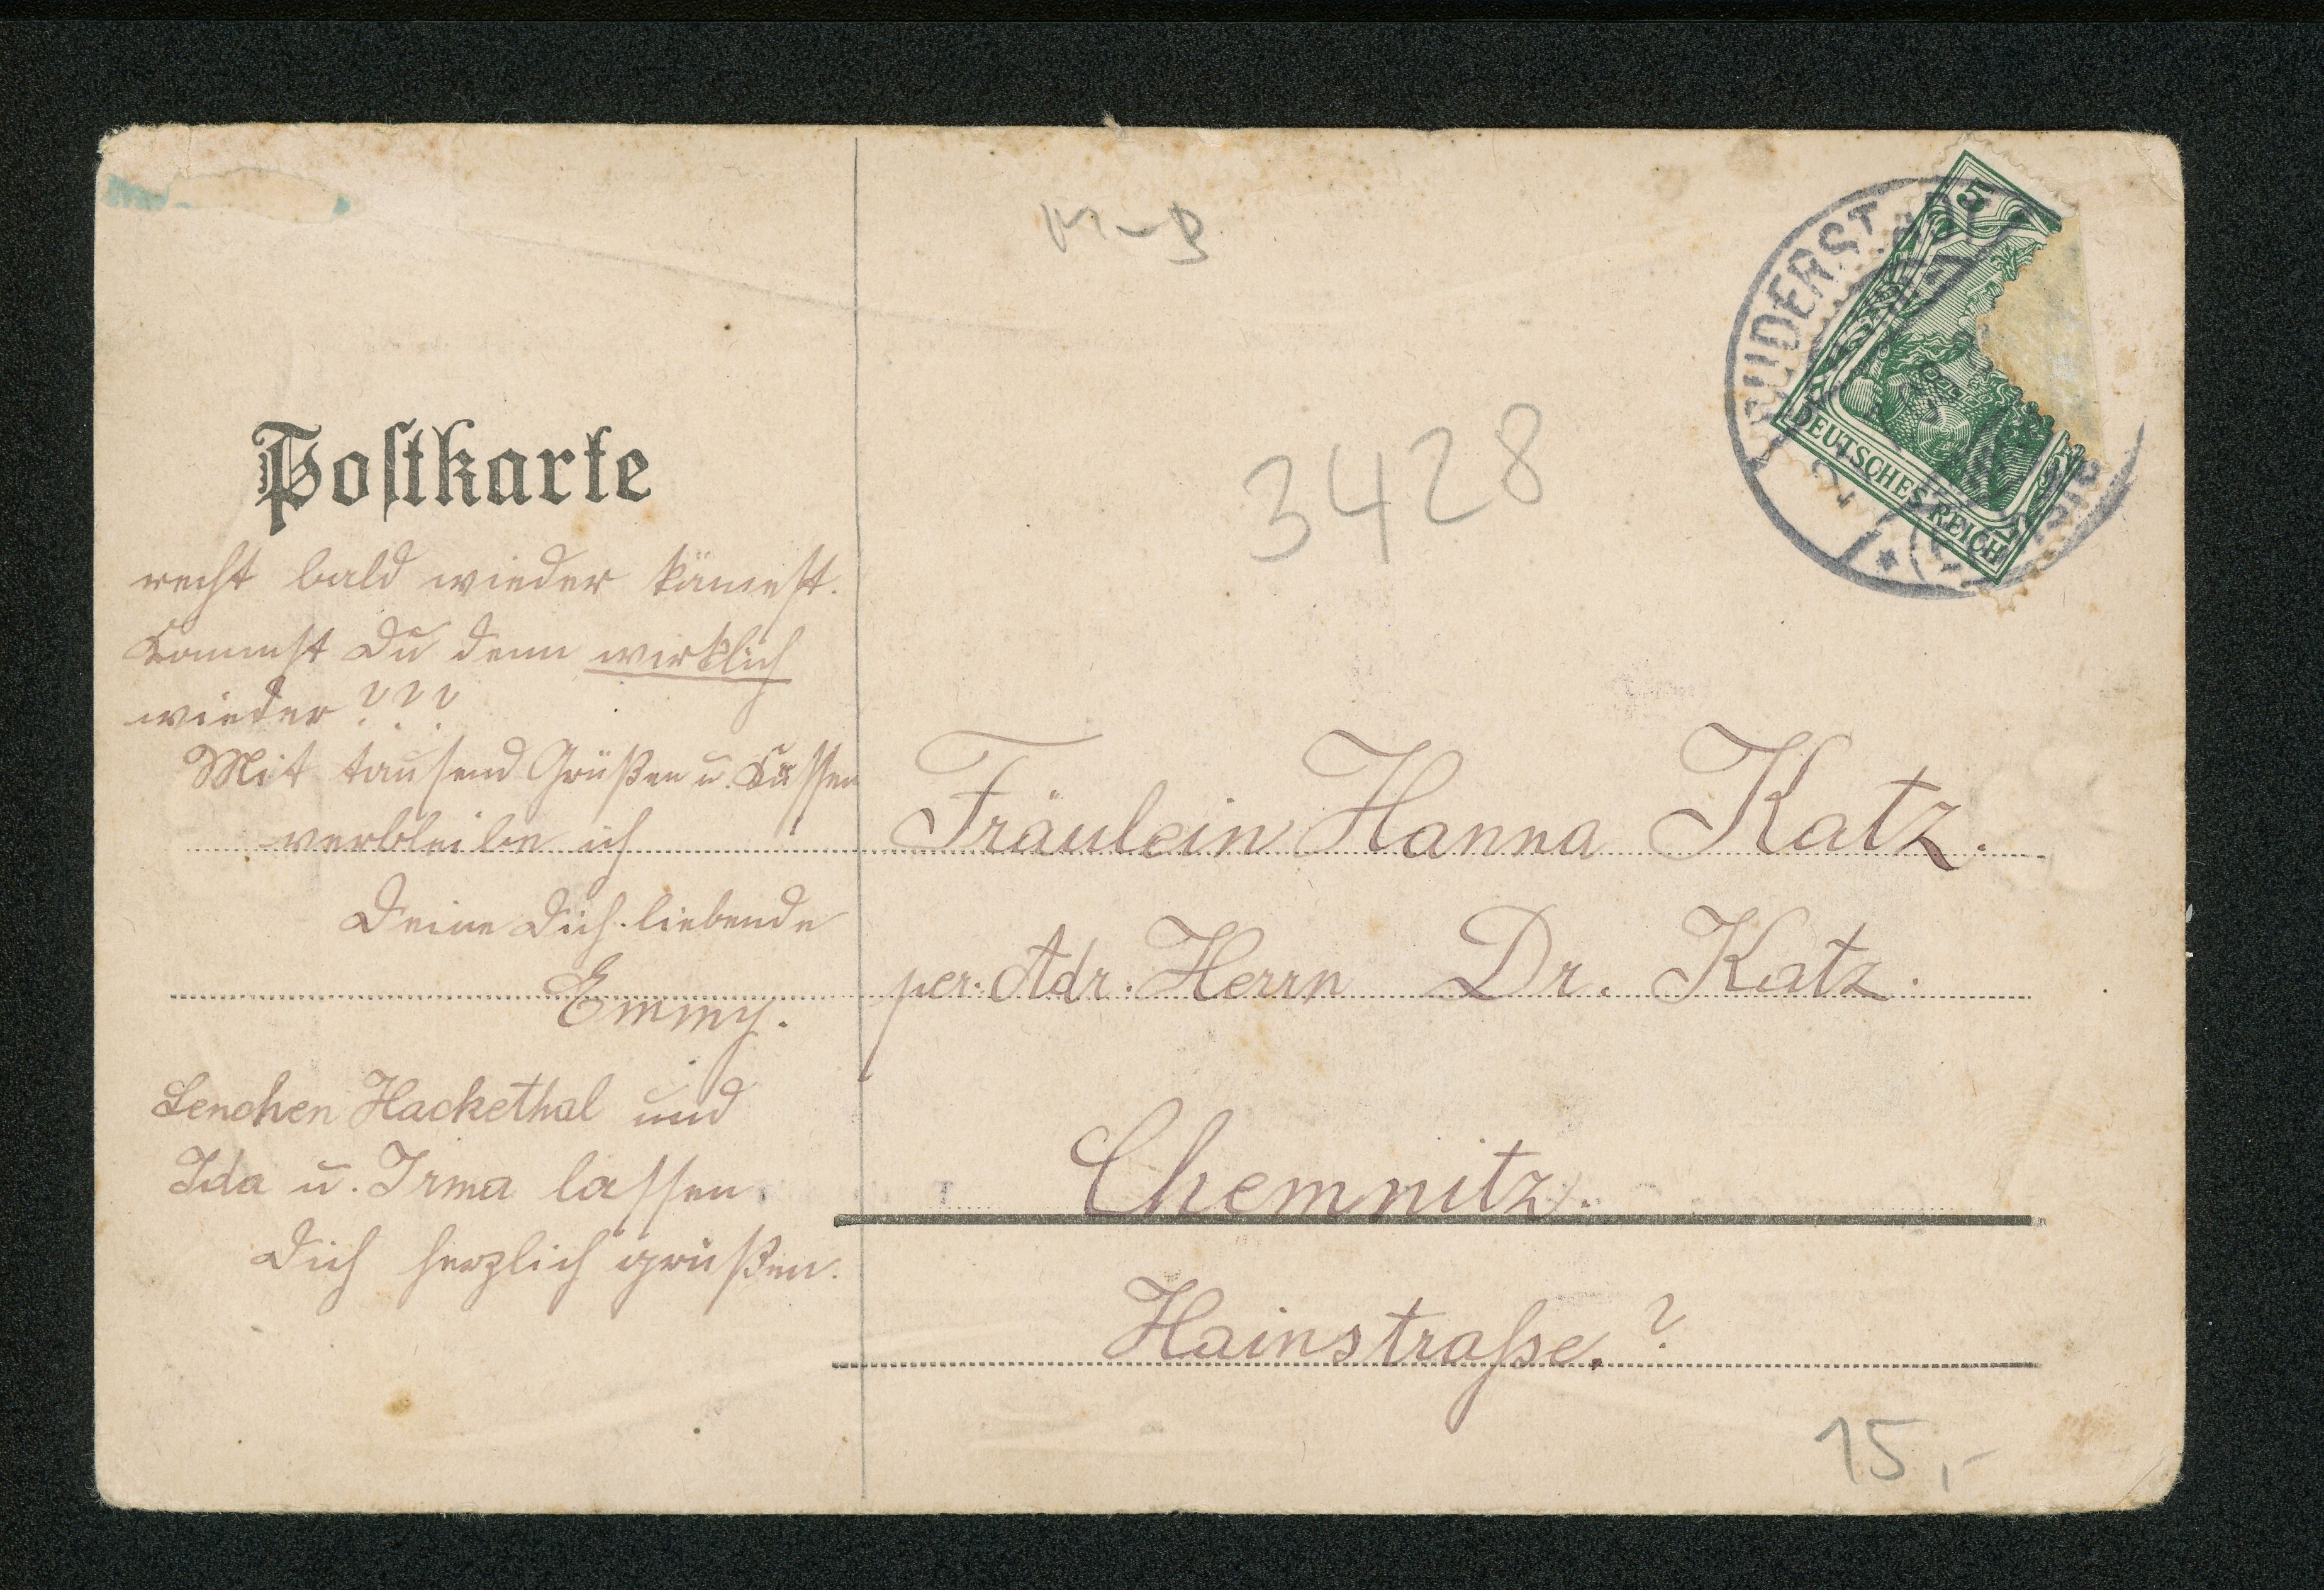 Postkarte
recht bald wieder kämest.
Kommst Du denn wirklich
wieder???
Mit tausend Grüßen u. Küssen
verbleibe ich
Deine Dich liebende
Emmy.
Lenchen Hackethal und
Ida u. Irma lassen
Dich herzlich grüßen.
M-B
3428
DUDERST
5
DEUTSCHES REICH
Fräulein Hanna Katz.
per. Adr. Herrn Dr. Katz.
Chemnitz.
Hainstraße.?
15,-